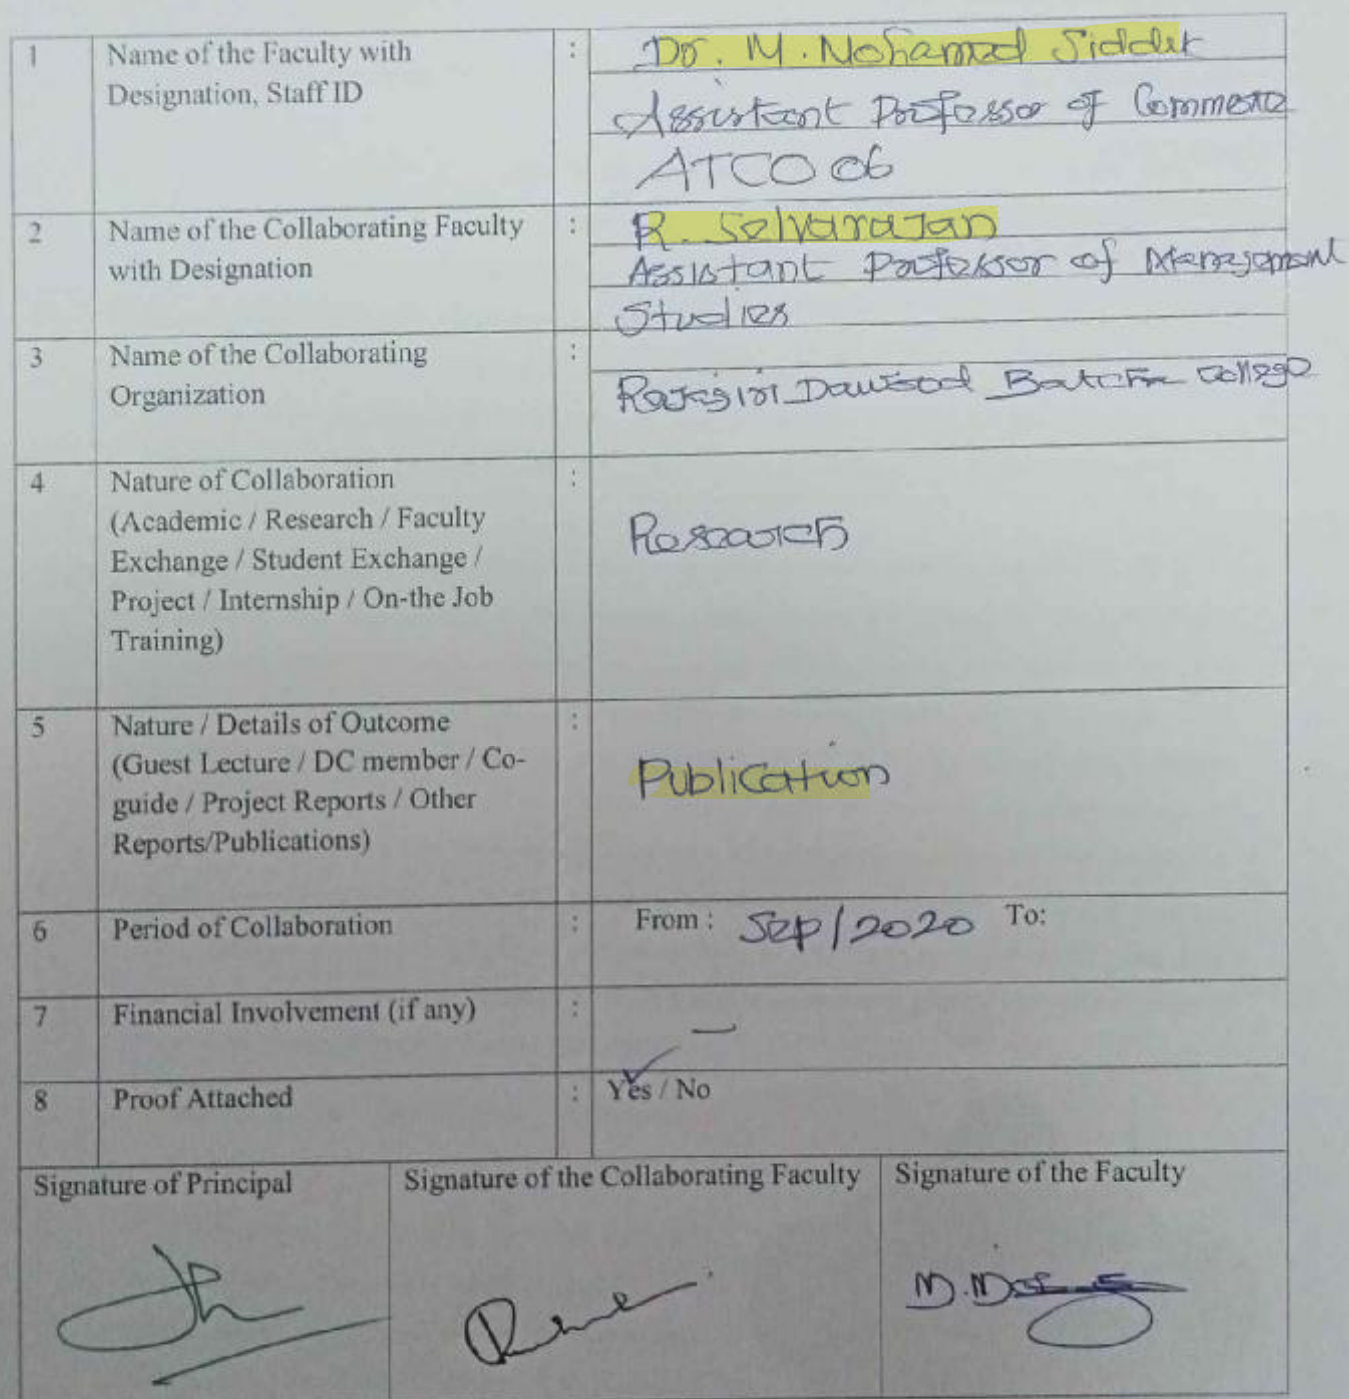 1 Name of the Faculty with : Dr. M. Mohamed Siddik
Designation, Staff ID Assistant Professor of Commerce
ATCO 06
2 Name of the Collaborating Faculty : R. Selvarajan
with Designation Assistant Professor of Management
Studies
3 Name of the Collaborating :
Organization Rajagiri Dawood Batcha College
4 Nature of Collaboration :
(Academic / Research / Faculty
Exchange / Student Exchange / Research
Project / Internship / On-the Job
Training)
5 Nature / Details of Outcome :
(Guest Lecture / DC member / Co-
guide / Project Reports / Other Publication
Reports/Publications)
6 Period of Collaboration : From : Sep/2020 To:
7 Financial Involvement (if any) : —
8 Proof Attached : Yes / No
Signature of Principal Signature of the Collaborating Faculty Signature of the Faculty